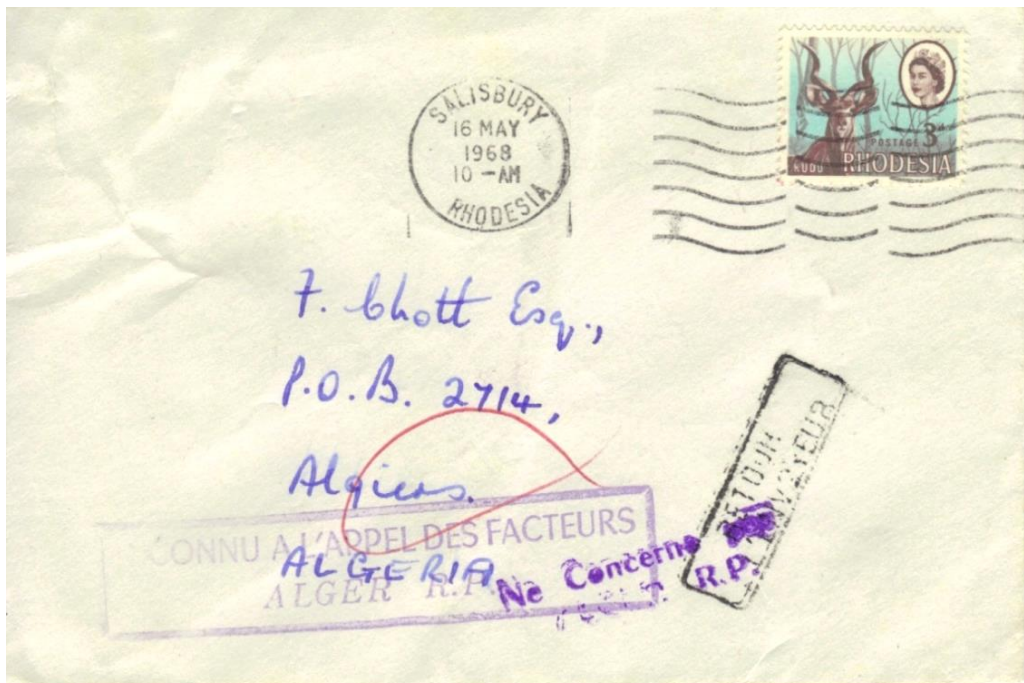 SALISBURY
16 MAY
1968
10 - AM
RHODESIA
POSTAGE 3d
KUDU RHODESIA
F. Chott Esq.,
P.O.B. 2714,
Algiers.
ALGERIA
CONNU A L'APPEL DES FACTEURS
ALGER R.P.
Ne Concerne
R.P.
RETOUR
ENVOYEUR